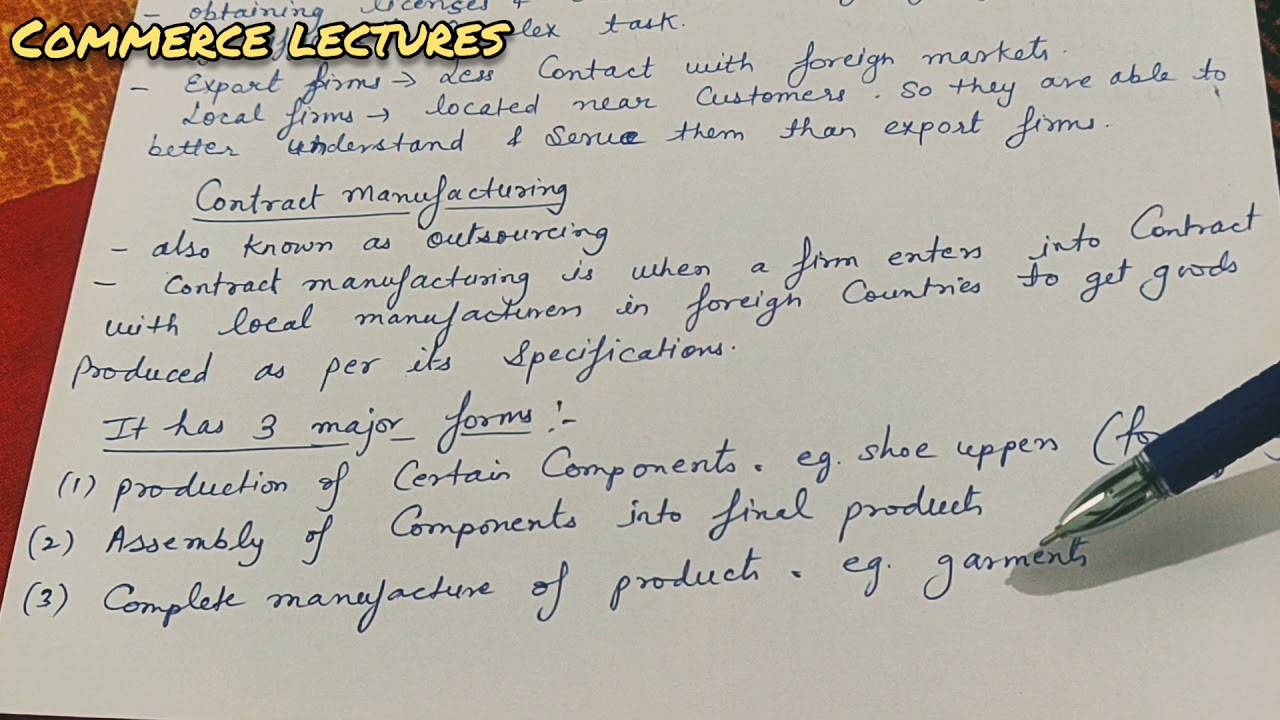 - obtaining licenses &
COMMERCE LECTURES
task.
- Export firms → Less Contact with foreign markets.
Local firms → located near Customers. So they are able to
better understand & Serve them than export firms.
Contract manufacturing
- also known as outsourcing
- Contract manufacturing is when a firm enters into Contract
with local manufacturers in foreign Countries to get goods
produced as per its specifications.
It has 3 major forms :-
(1) production of Certain Components. eg. shoe uppers
(2) Assembly of Components into final products
(3) Complete manufacture of products. eg. garments